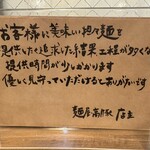 お客様に美味しい担々麺を
提供したく追求した結果工程が多くなり
提供時間が少しかかります
優しく見守っていただけるとありがたいです
店主